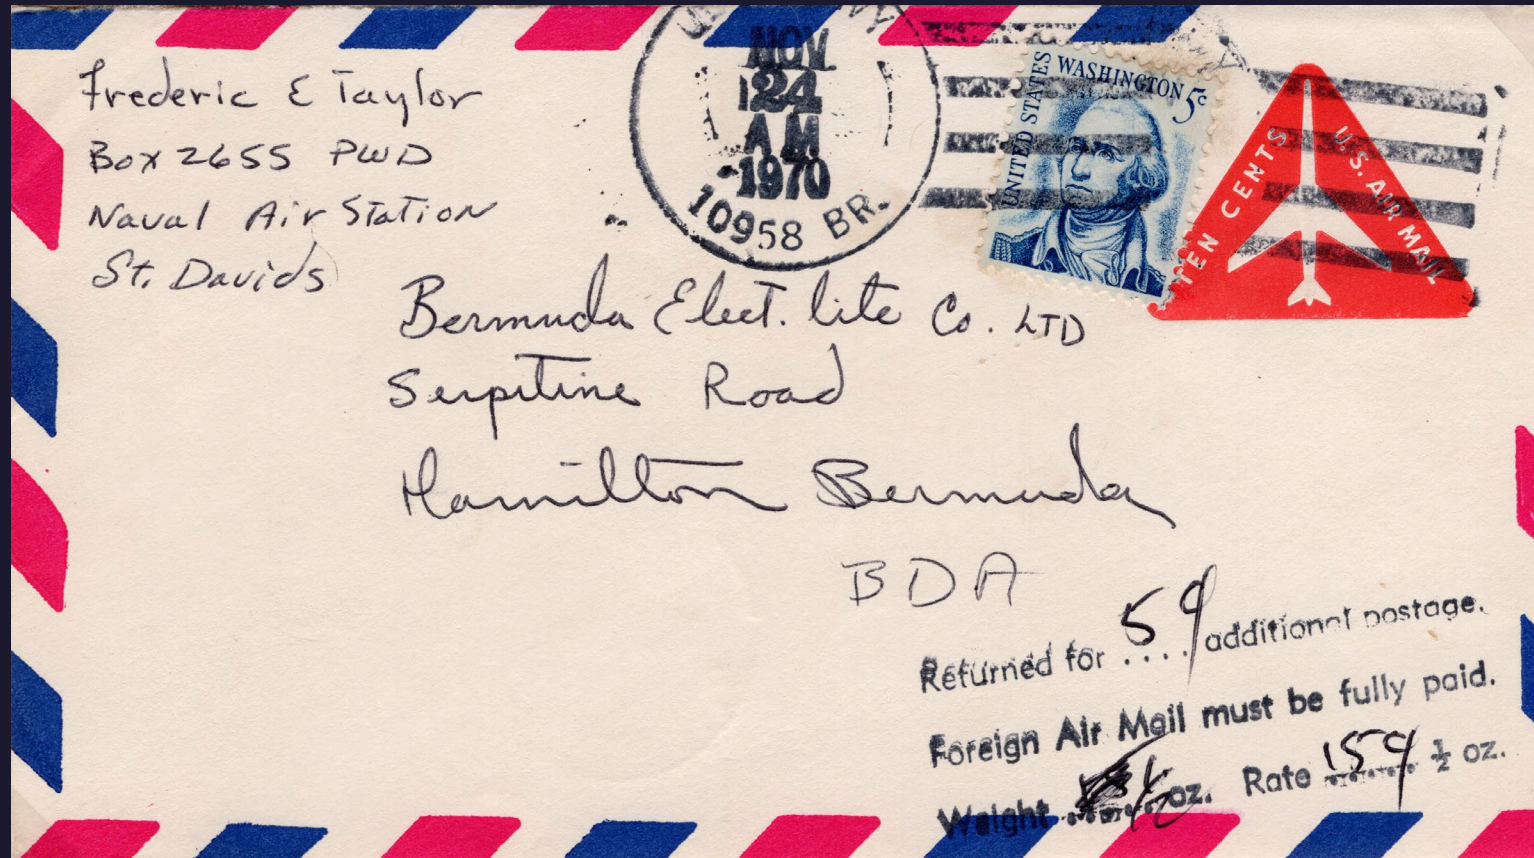 Frederic E Taylor
Box 2655 PWD
Naval Air Station
St. Davids
NOV
24
AM
1970
10958 BR.
UNITED STATES WASHINGTON 5c
TEN CENTS U.S. AIR MAIL
Bermuda Elect. lite Co. LTD
Serpitine Road
Hamilton Bermuda
BDA
Returned for 5¢ additional postage.
Foreign Air Mail must be fully paid.
Weight ½ oz. Rate 15¢ ½ oz.